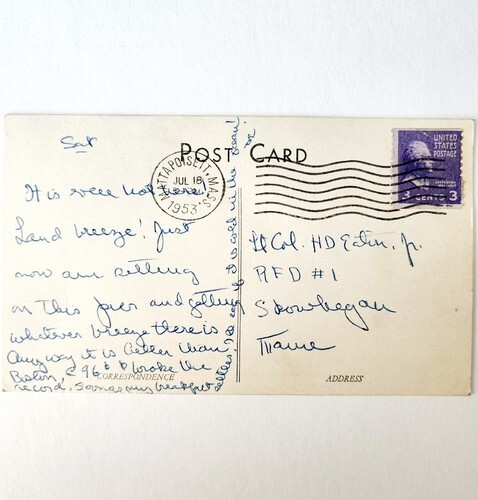 POST CARD
Sat
MATTAPOISETT, MASS.
JUL 18
1953
UNITED
STATES
POSTAGE
3 CENTS 3
It is even hot here!
Land breeze! Just
now am sitting
on this pier and getting
whatever breeze there is
Anyway it is better than
Boston, 96° broke the
record. As soon as my breakfast
settles I'll
It is cold in the ocean!
Lt Col. HD Eaton, Jr.
RFD #1
Skowhegan
Maine
CORRESPONDENCE
ADDRESS